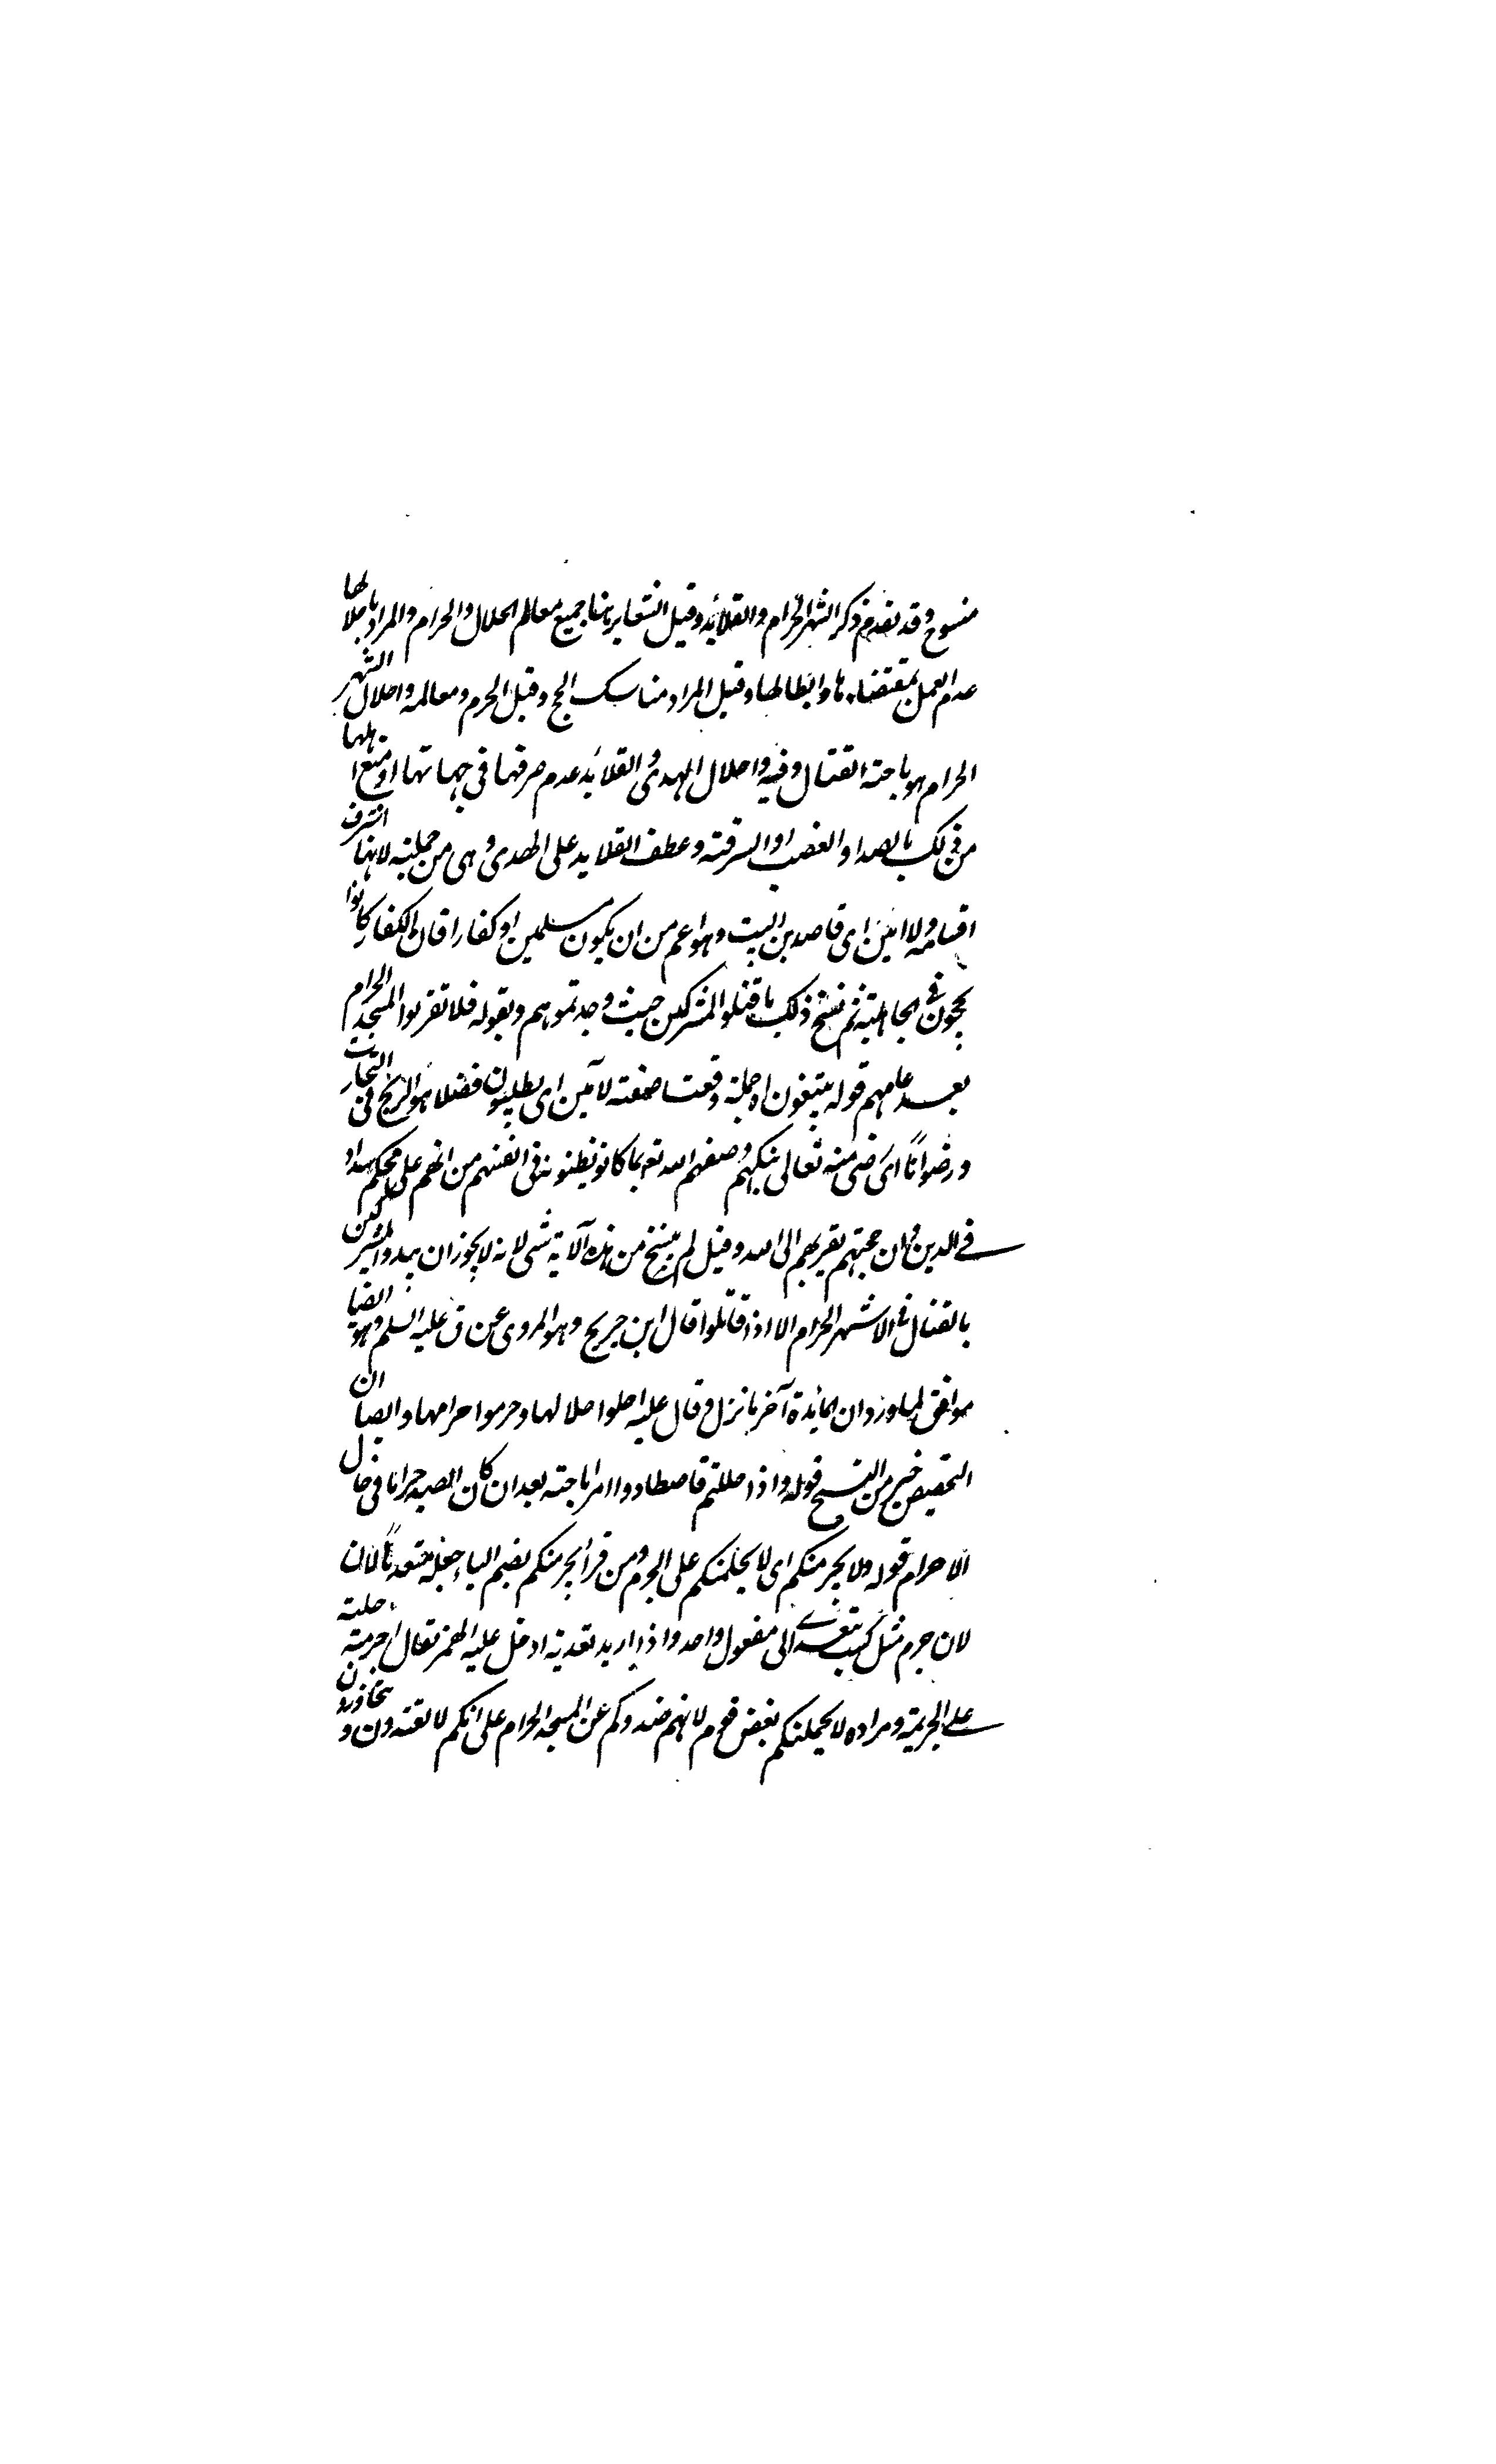 منسوخ وقد تقدم ذكر الشهر الحرام والقلائد وقيل الشعاير هنا جميع معالم الحلال والحرام والمراد باحلالها
عدم العمل بمقتضاءها وابطالها وقيل المراد مناسك الحج وقيل الحرم ومعالمه واحلال الشهر
الحرام هو باحته القتال وفيه واحلال الهدى والقلائد عدم صرفها في جهاتها او منع اهلها
من ذلك بالصد او الغصب او السرقة وعطف القلايد على الهدى وهى من جملته لانها اشرف
اقسامه ولا امين اى قاصدين البيت وهو اعم من ان يكون مسلمين او كفارا قال الكفار كانوا
يحجون في الجاهلية ثم نسخ ذلك باقتلوا المشركين حيث وجدتموهم وبقوله فلا تقربوا المسجد الحرام
بعد عامهم قوله يبتغون اه جملة وقعت صفة لآمين اى يطلبون فضلا هو الربح في التجارت
ورضوانًا اى رضى منه تعالى بنكهم وصفهم الله تع بما كانو يظنونه في انفسهم من انهم على محكم سداد
في الدين وان حجتهم يقربهم الى الله وقيل لم ينسخ من هذه الآية شى لانه لا يجوز ان يبدوا المشركين
بالقتال في الاشهر الحرام الا اذا قاتلوا قال ابن جريح وهو المروى عن ق عليه السلم وهو ايضا
موافق لما ورد ان المائدة آخر ما نزل وقال عليه احلوا حلالها وحرموا حرامها وايضا ان
التخصيص خير من النسخ قوله واذا حللتم فاصطادوا امر اباحته بعد ان كان الصيد حراما في حال
الاحرام قوله ولا يجرمنكم اى لا يحملنكم على الجرم ومن قرا يجرمنكم بضم الياء جعله متعديًا لان
لان جرم مثل كسب يتعدى الى مفعول واحد واذا اريد تعديته ادخل عليه الهمز تقال اجرمته حملته
على الجريمة ومراده لا يحملنكم بغض قوم لانهم صدوكم عن المسجد الحرام على انكم لا تعتدون وتتجاوزون